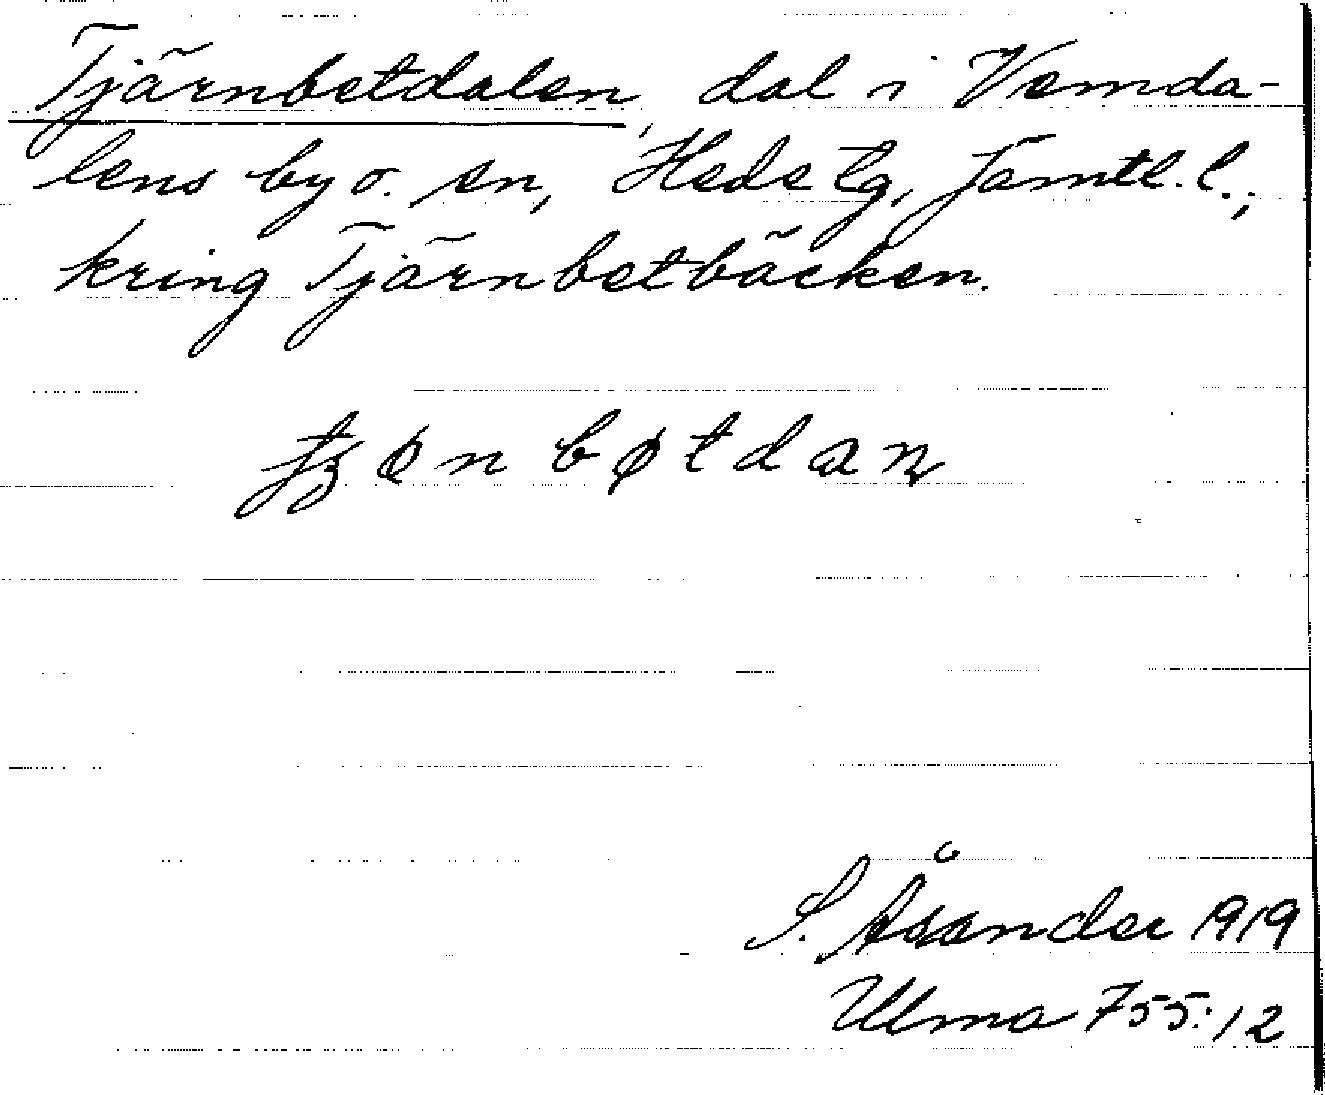 Tjärnbetdalen, dal i Vemda-
lens by o. sn, Hede tg, Jämtl. l.;
kring Tjärnbetbäcken.
S. Åsander 1919
Ulma 755:12